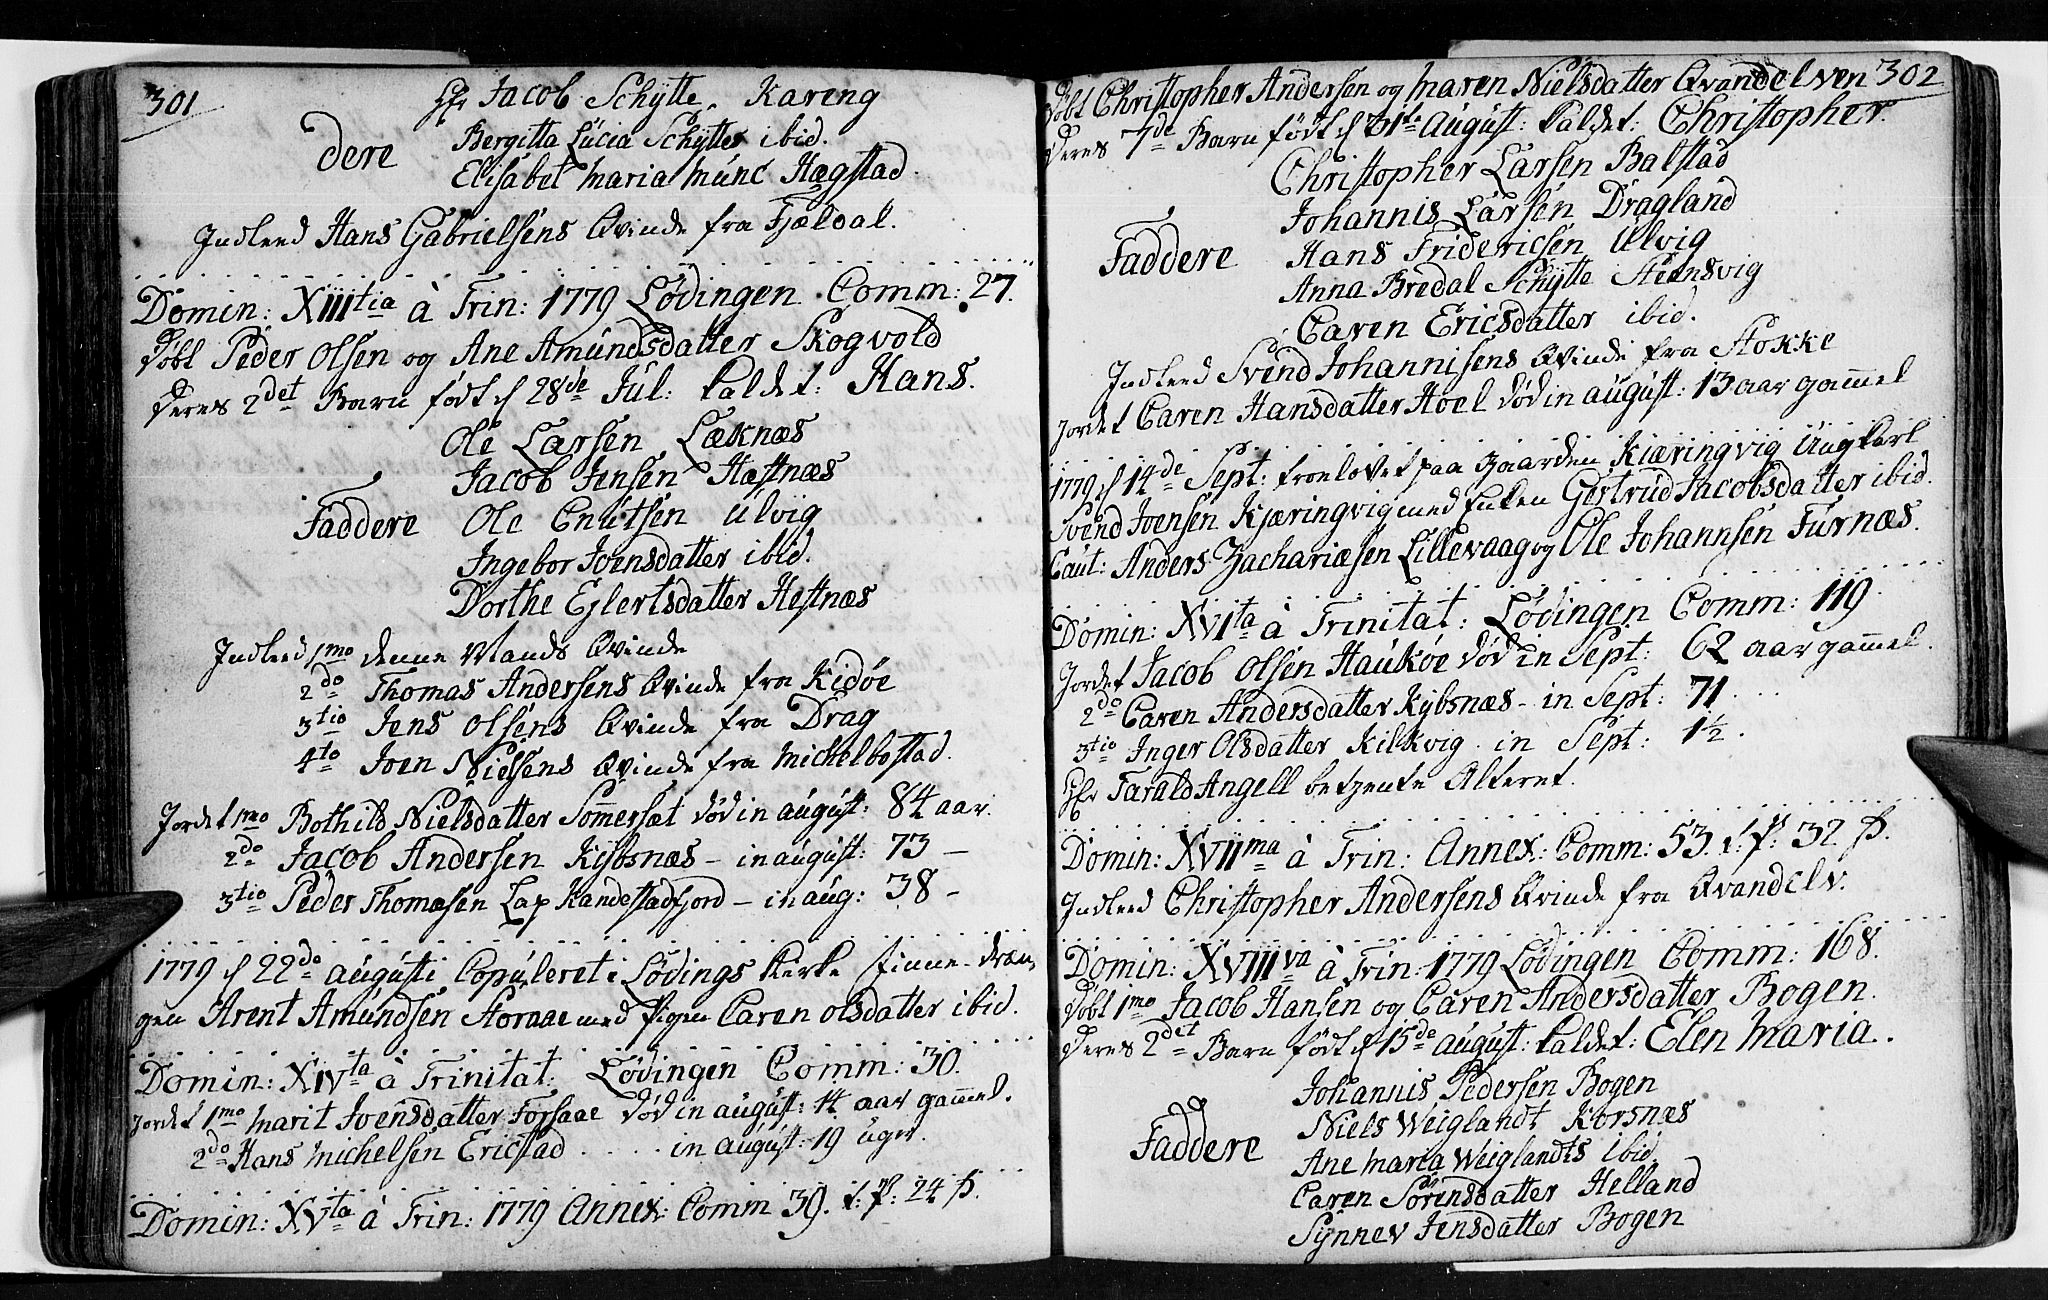 301
Hr Jacob Schytte. Kareng
dere Bergitta Lucia Schyttes ibid.
Elisabet Maria Munc Hægstad.
Indleed Hans Gabrielsens Qvinde fra Fjeldal.
Domin: XIIItia à Trin: 1779 Lødingen Comm: 27.
Døbt Peder Olsen og Ane Amundsdatter Skogvold
Deres 2det Barn født d 28de Jul: kaldet: Hans.
Ole Larsen Læknæs
Jacob Jensen Hæstnæs
Faddere Ole Cnutsen Ulvig
Ingebor Joensdatter ibid.
Dorthe Ejlertsdatter Hestnæs
Indleed 1mo denne Mands Qvinde
2do Thomas Andersens Qvinde fra Kidøe
3tio Jens Olsens Qvinde fra Drag
4to Joen Nielsens Qvinde fra Michelbostad.
Jordet 1mo Bothild Nielsdatter Sommersæt død in august: 84 aar.
2do Jacob Andersen Kjibsnæs – in august: 73 –
3tio Peder Thomæsen Lap Kandestadfjord – in aug: 38 –
1779 d 22do augusti Copuleret i Lødings Kirke Finne-dræn
gen Arent Amundsen Storaae med Pigen Caren Olsdatter ibid.
Domin: XIVta à Trinitat: Lødingen Comm: 30.
Jordet 1mo Marit Joensdatter Forsaae død in august: 14 aar gammel.
2do Hans Michelsen Ericstad . . . . . in august: 19 uger.
Domin: XVta à Trin: 1779 Annex: Comm 39. t: p: 24 s.
302
Døbt Christopher Andersen og Maren Nielsdatter Qvandelven
Deres 7de Barn født d 31te August: kaldet: Christopher.
Christopher Larsen Balstad
Johannis Larsen Dragland
Faddere Hans Fridericsen Ulvig
Anna Bredal Schytte Steensvig
Caren Ericsdatter ibid.
Indleed Svend Johannisens Qvinde fra Stokke
Jordet Caren Hansdatter Hoel død in august: 13 aar gammel
1779 d 14de Sept: troelovet paa gaarden Kiæringvig Ungkarl
Svend Joensen Kjæringvig med Enken Gertrud Jacobsdatter ibid.
Caut: Anders Zachariæsen Lillevaag og Ole Johannsen Furnæs.
Domin: XVIta à Trinitat: Lødingen Comm: 119.
Jordet Jacob Olsen Haukøe død in Sept: 62 aar gammel.
2do Caren Andersdatter Kybsnæs – in Sept: 71
3tio Inger Olsdatter Kilkvig. in Sept: 1½.
Hr Tarald Angell betjente Alteret.
Domin: XVIIma à Trin: Annex: Comm: 53. t: p: 32 s.
Indleed Christopher Andersens Qvinde fra Qvandelv.
Domin: XVIIIva à Trin: 1779 Lødingen Comm: 168.
Døbt 1mo Jacob Hansen og Caren Andersdatter Bogen.
Deres 2det Barn født d 15de august: kaldet: Elen Maria.
Johannis Pedersen Bogen
Niels Weiglandt Korsnæs
Faddere Ane Maria Weiglandts ibid.
Caren Sørensdatter Helland
Synnev Jensdatter Bogen